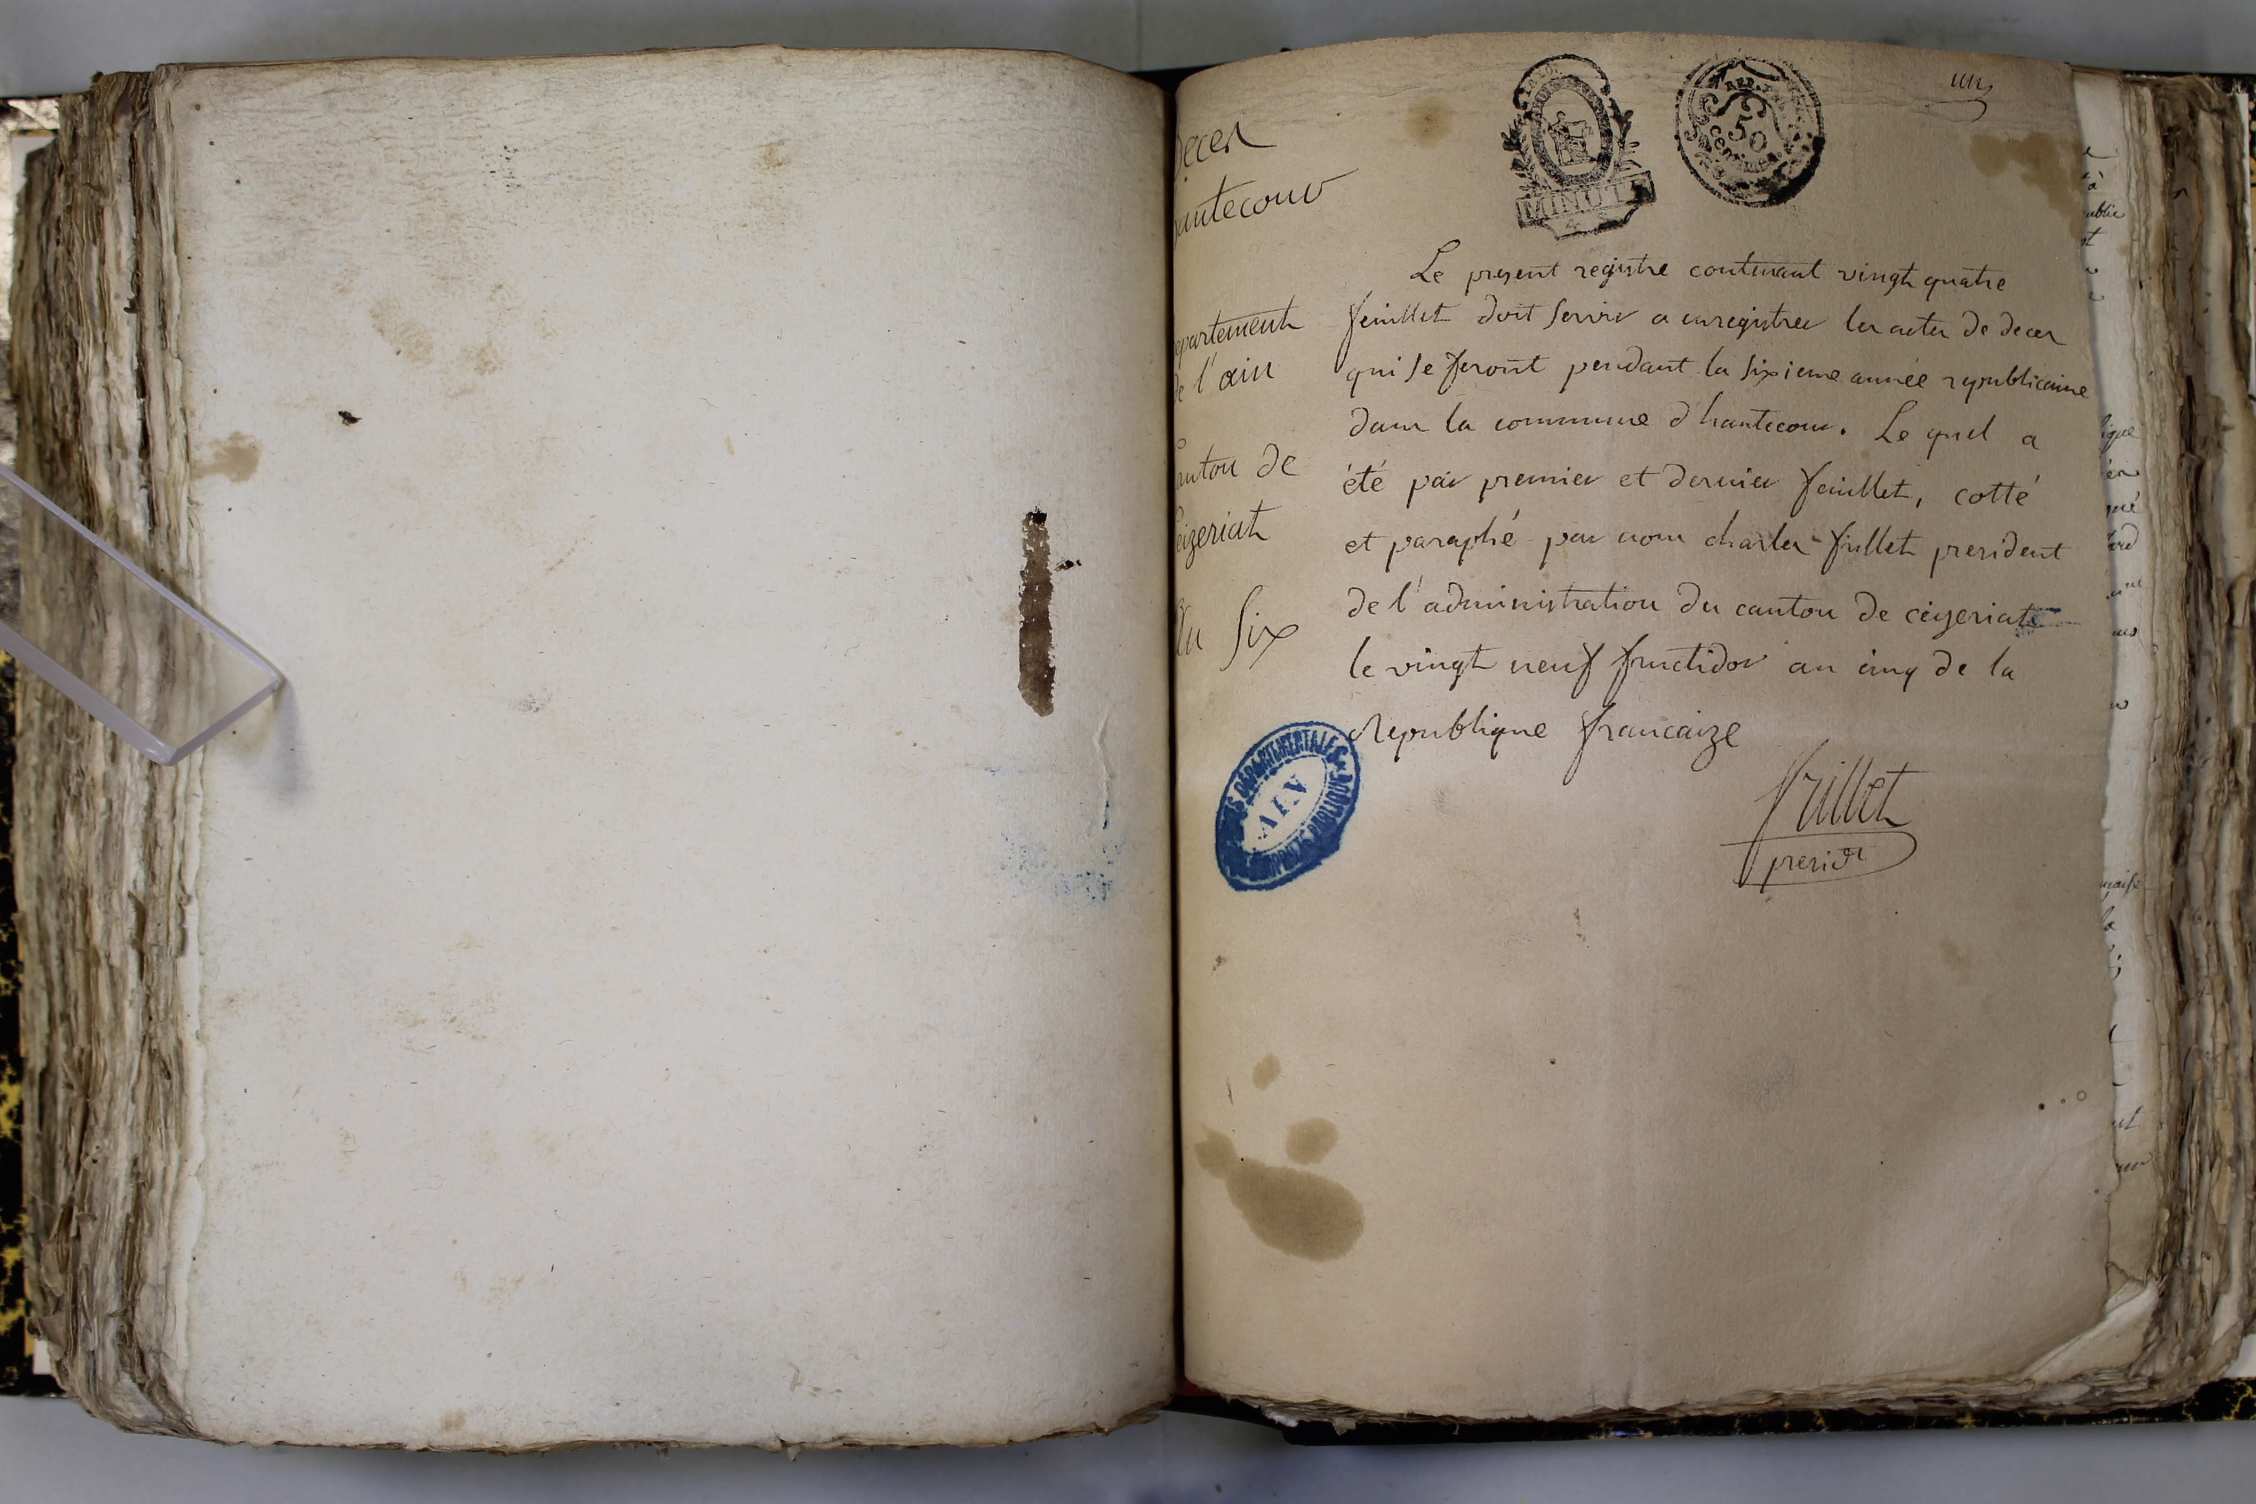 un
Deces
hautecour
Departement
de l'ain
Canton de
Ceizeriat
An Six
MINUTE
REP. FRA.
50
Centimes
Le present registre contenant vingt quatre
feuillet doit servir a enregistrer les actes de deces
qui se feront pendant la sixieme année republicaine
dans la commune d'hautecour. Le quel a
été par premier et dernier feuillet, cotté
et paraphé par nous charles frillet president
de l'administration du canton de ceyzeriat
le vingt neuf fructidor an cinq de la
Republique francaize
frillet
presidt
ARCHIVES DÉPARTEMENTALES
AIN